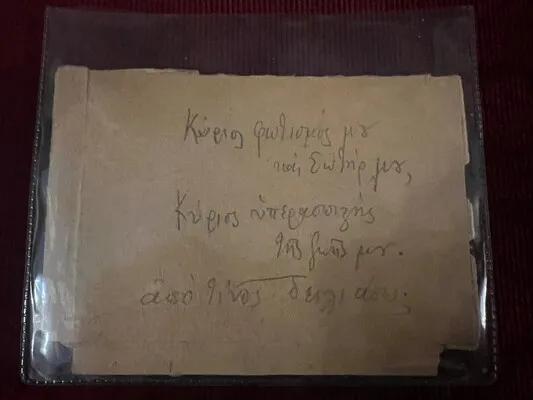 Κύριος φωτισμός μου
καὶ Σωτήρ μου,
Κύριος ὑπερασπιστής
τῆς ζωῆς μου.
ἀπό τίνος δειλιάσω;